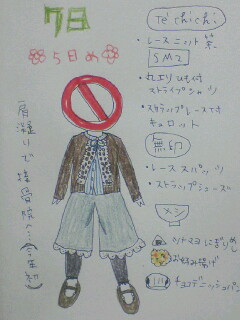 7日
5日め
Te chichi
・レースニット 茶
SM2
・丸エリひも付
ストライプシャツ
・スカラップレースデキ
キュロット
無印
・レーススパッツ
・ストラップシューズ
メシ
ツナマヨにぎりめし
お好み揚げ
チョコデニッシュパン
肩凝りで接骨院へ…